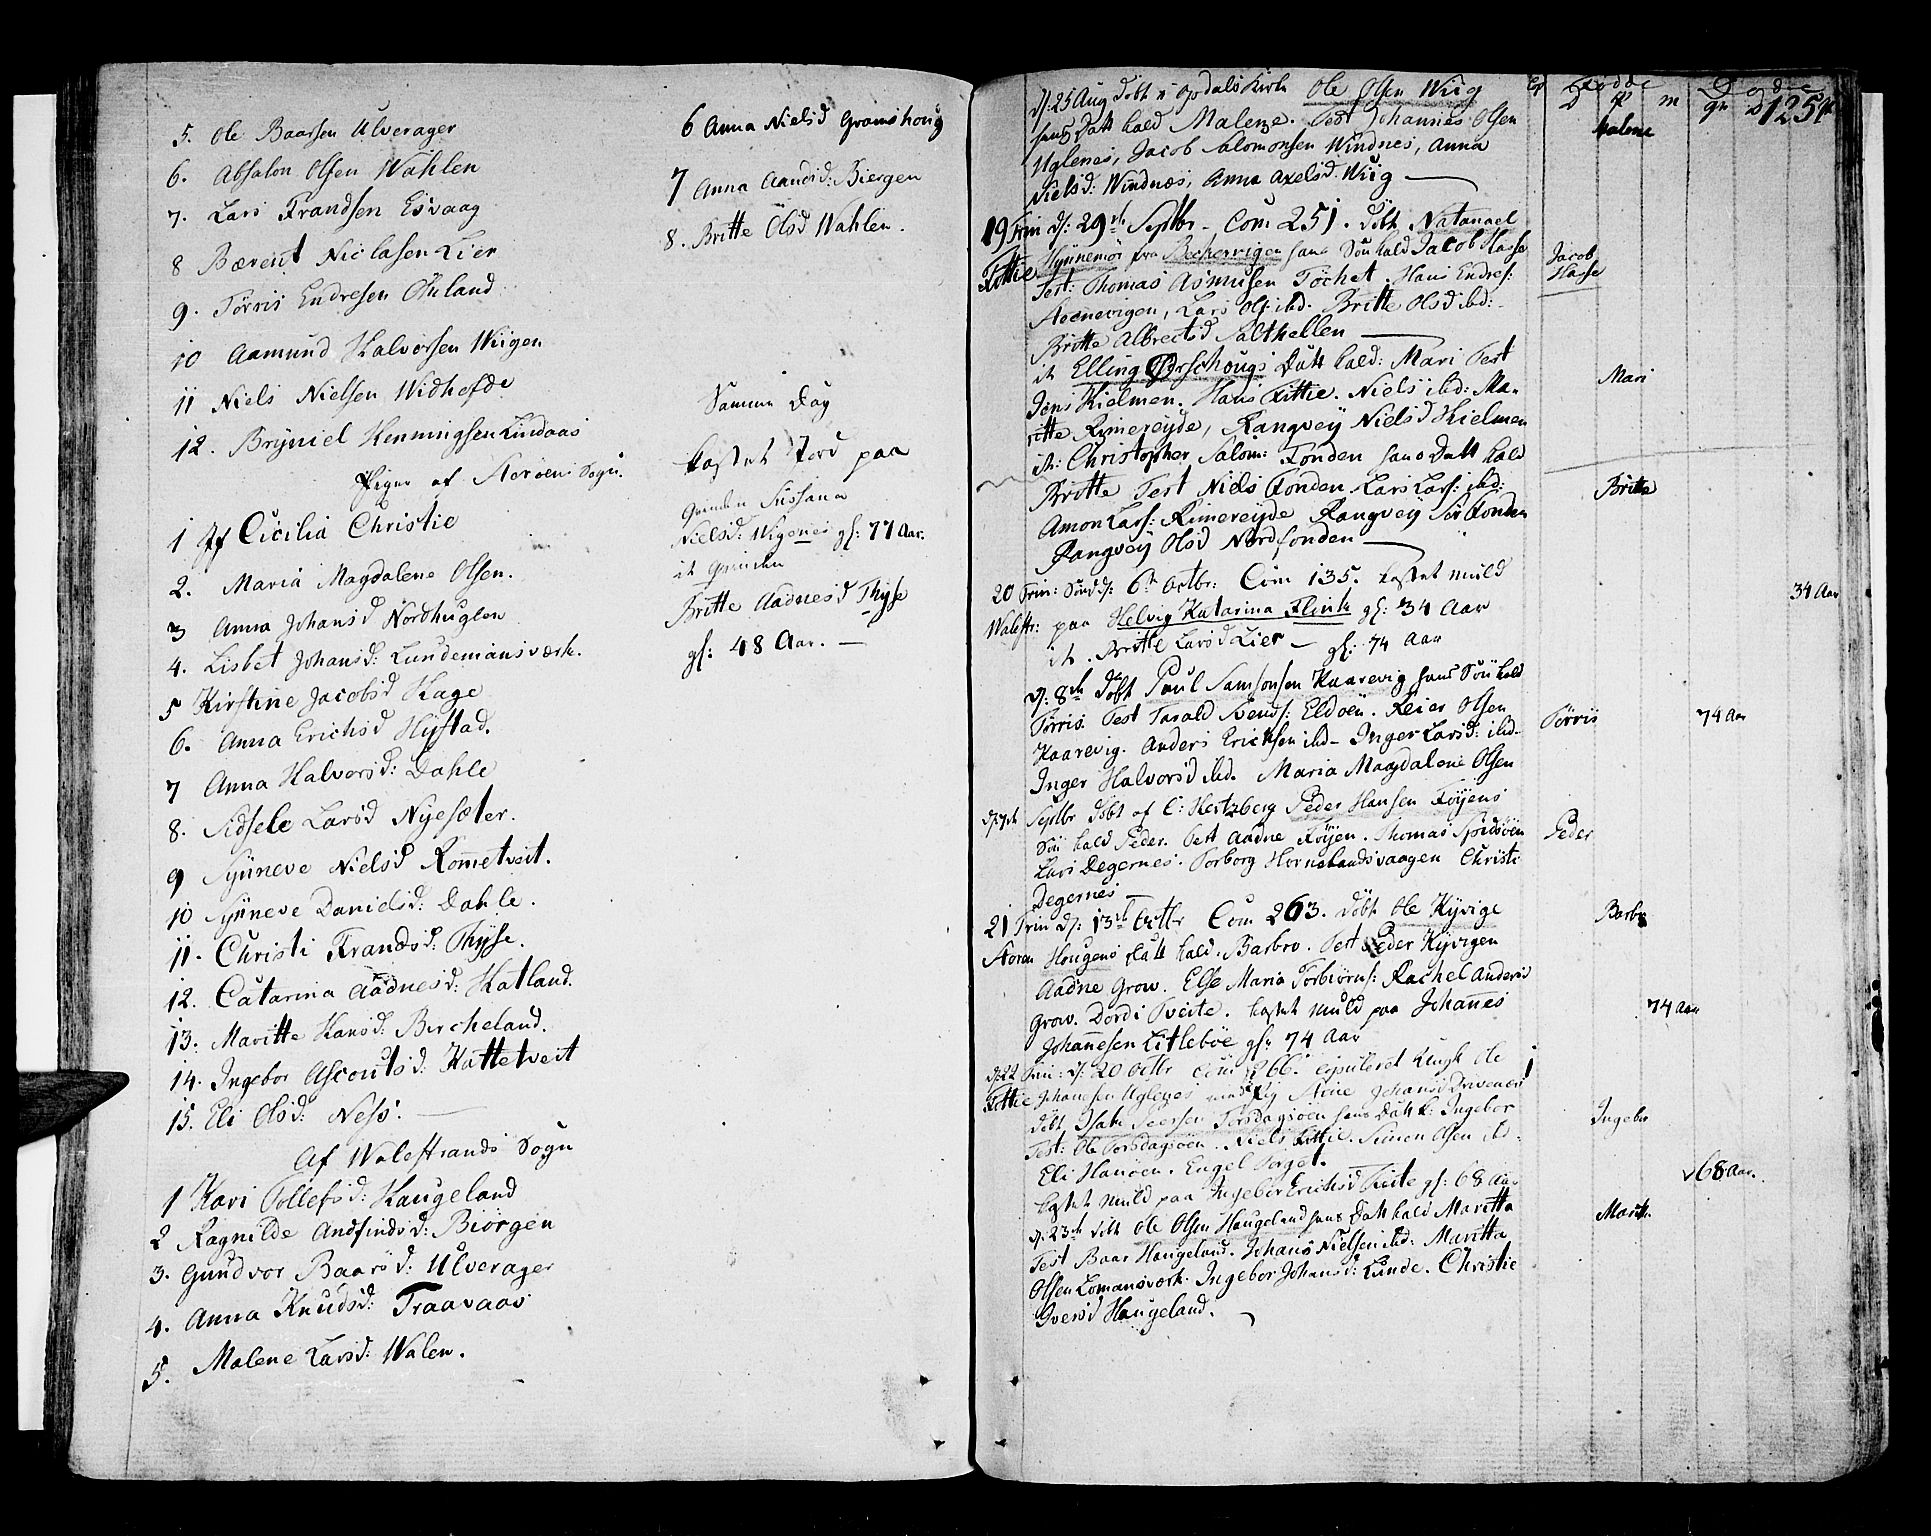 5. Ole Baarsen Ulverager
6. Absalon Olsen Wahlen
7. Lars Frandsen Eisvaag
8 Bærent Niclasen Lier
9. Tørris Endresen Øhland
10 Aamund Halvorsen Wiigen
11 Niels Nielsen Widhefde
12. Bryniel Henningsen Lindaas
Piger af Storöens Sogn.
1 Jf Cicilia Christie
2. Maria Magdalene Olsen.
3 Anna Johansd Nordhuglen
4. Lisbet Johansd: Lundemansværk.
5 Kirstine Jacobsd Hage
6. Anna Erichsd Hystad.
7 Anna Halvorsd: Dahle
8. Sidsele Larsd Nyesæter.
9 Synneve Nielsd Rometveit.
10 Synneve Danielsd: Dahle.
11. Christi Frandsd: Thyse.
12. Catarina Aadnesd: Hatland.
13. Maritte Hansd: Bircheland.
14. Ingebor Ascoutsd: Kattetveit
15. Eli Olsd: Ness.
Af Walestrands Sogn
1 Kari Tollefsd: Haugeland
2 Ragnilde Andfindsd: Biörgen
3. Gundvor Baarsd: Ulverager
4. Anna Knudsd: Traavaas
5. Malene Larsd: Walen.
6 Anna Nielsd Gramshoug
7 Anna Aamdsd: Biergen
8. Britte Olsd Wahlen.
Samme Dag
kastet Jord paa
Qvinden Sussana
Nielsd: Wigenes gl: 77 Aar.
it Qvinden
Britte Aadnesd Thyse
gl: 48 Aar.
Fødde Døde
D P m qv D 125 P
d: 25 Aug döbt i Opdals Kirke Ole Olsen Wiig
hans Datt kald Malene. Test Johannes Olsen
Uglenes, Jacob Salomonsen Windnes, Anna
Nielsd: Windnæs, Anna Axelsd. Wiig
Malene
19 Trin d: 29de Septbr. Com 251. döbt Natanael
Fittie Hynnemör fra Beckervigen hans Søn kald Jacob Hasse
Test: Thomas Asmusen Töchet. Hans Endres:
Steenevigen, Lars Ols: ibd. Britte Olsd ibd:
Britte Albrectsd Salthellen
Jacob
Hasse
it Elling Orschougs Datt kald: Mari Test
Jens Kielmen. Hans Fittie. Niels ibd: Ma-
ritte Rimereyde, Rangvey Nielsd Kielmen
Mari
it: Christopher Salom: Fonden hans Datt kald
Britte Test Niels Fonden Lars Lars: ibd:
Amon Lars: Rimereyde Rangvey Sör Fonden
Rangvey Olsd Nordfonden
Britta
20 Trin: Sönd: 6te Octbr: Com 135. kastet muld
Walestr: paa Helvig Katarina Flink gl: 34 Aar
34 Aar
it. Britte Larsd Lier gl: 74 Aar
d: 8de döbt Poul Samsonsen Kaarevig hans Søn kald
Törris Test Tarald Svends: Eldöen. Reier Olsen
Kaarevig. Anders Erichsen ibd. Inger Larsd: ibd.
Inger Halvorsd ibd. Maria Magdalene Olsen
Tørris
74 Aar
d: 7de Septbr döbt af C: Hertzberg Peder Hansen Föyens
Søn kald Peder. Test Aadne Föyen. Thomas Spidsöen
Lars Degernes. Torborg Hornelandsvaagen Christi
Degernes
Peder
21 Trin d: 13de Octbr Com 263. döbt Ole Kyvige
Storøn Hougens Datt kald. Barbro. Test Peder Kyvigen
Aadne Grow. Else Maria Torbiörns: Rachel Andersd
Grow. Dordi Tveite. kastet muld paa Johanes
Johanesen Litleböe gl: 74 Aar
Barbro
74 Aar
d: 22 Trin: d: 20 Octbr Com 266. copuleret Ungk Ole
Fittie Johansen Uglenes med Pig Stine Johansd Drivenes
1
döbt Isak Seersen Torsdagiöen hans Datt k: Ingebor
Test: Ole Torsdagiöen. Niels Fittie. Simen Olsen ibd.
Eli Hanöen. Engel Torget.
Ingebor
kastet muld paa Ingebor Erichsd Tveite gl: 68 Aar
68 Aar.
d: 23de döbt Ole Olsen Haugeland hans Datt kald Maritta
Test Baar Haugeland. Johans Nielsen ibd: Maritta
Olsen Lomansværk. Ingebor Johansd: Lunde. Christie
Iversd Haugeland.
Maritt.